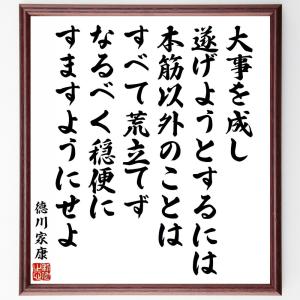 大事を成し
遂げようとするには
本筋以外のことは
すべて荒立てず
なるべく穏便に
すますようにせよ
徳川家康